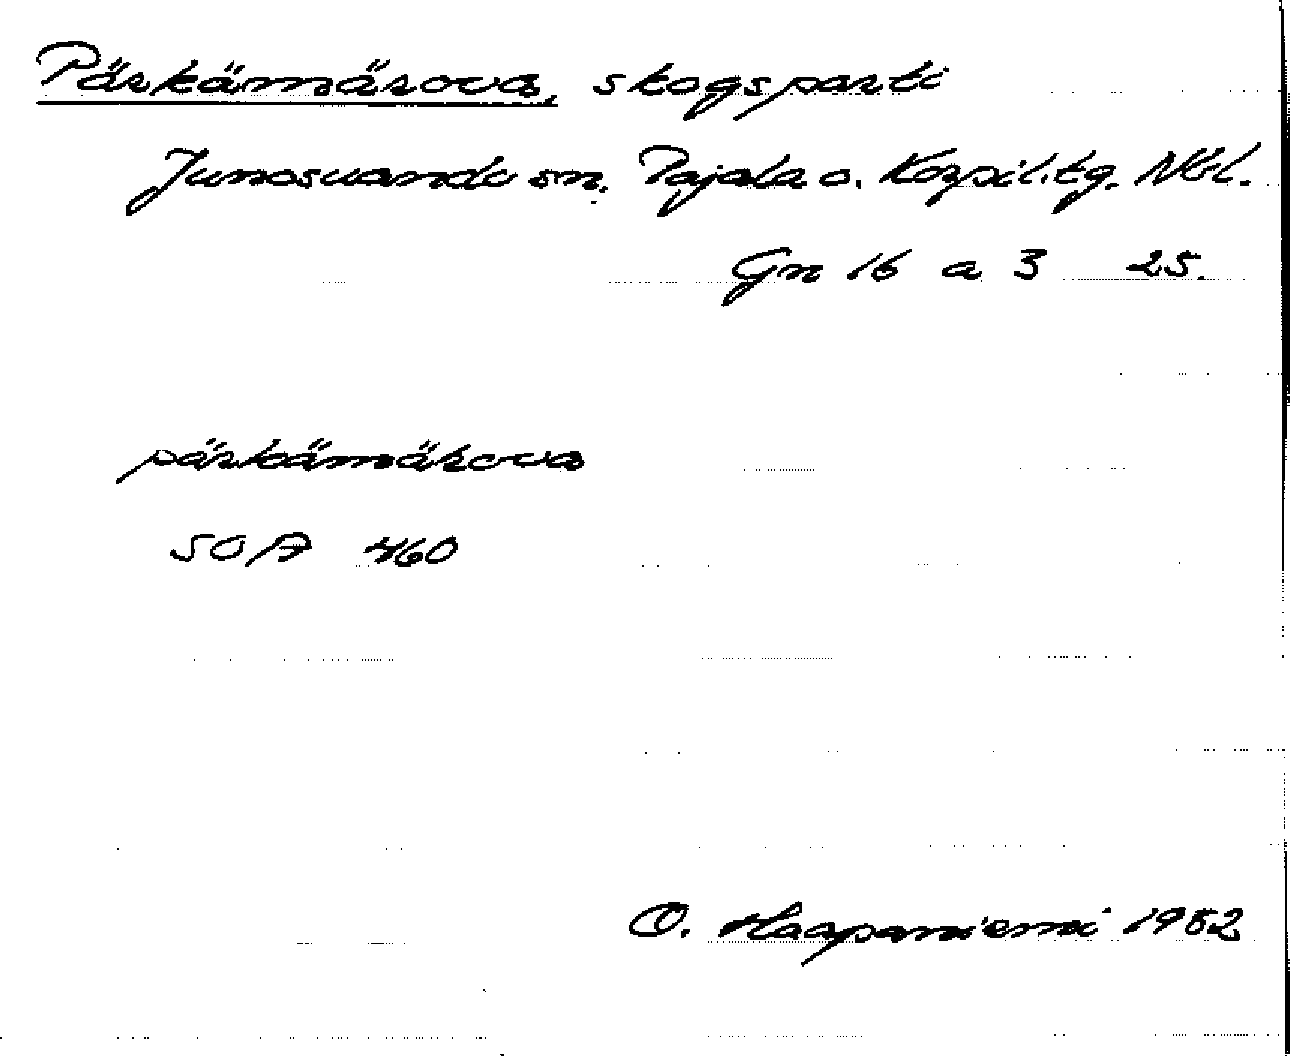 Pärkämärova, skogsparti
Junosuando sn. Pajala o. Korpil.tg. Nbl.
Gn 16 a 3 25.
pärkämärova
SOA 460
O. Haapaniemi 1982